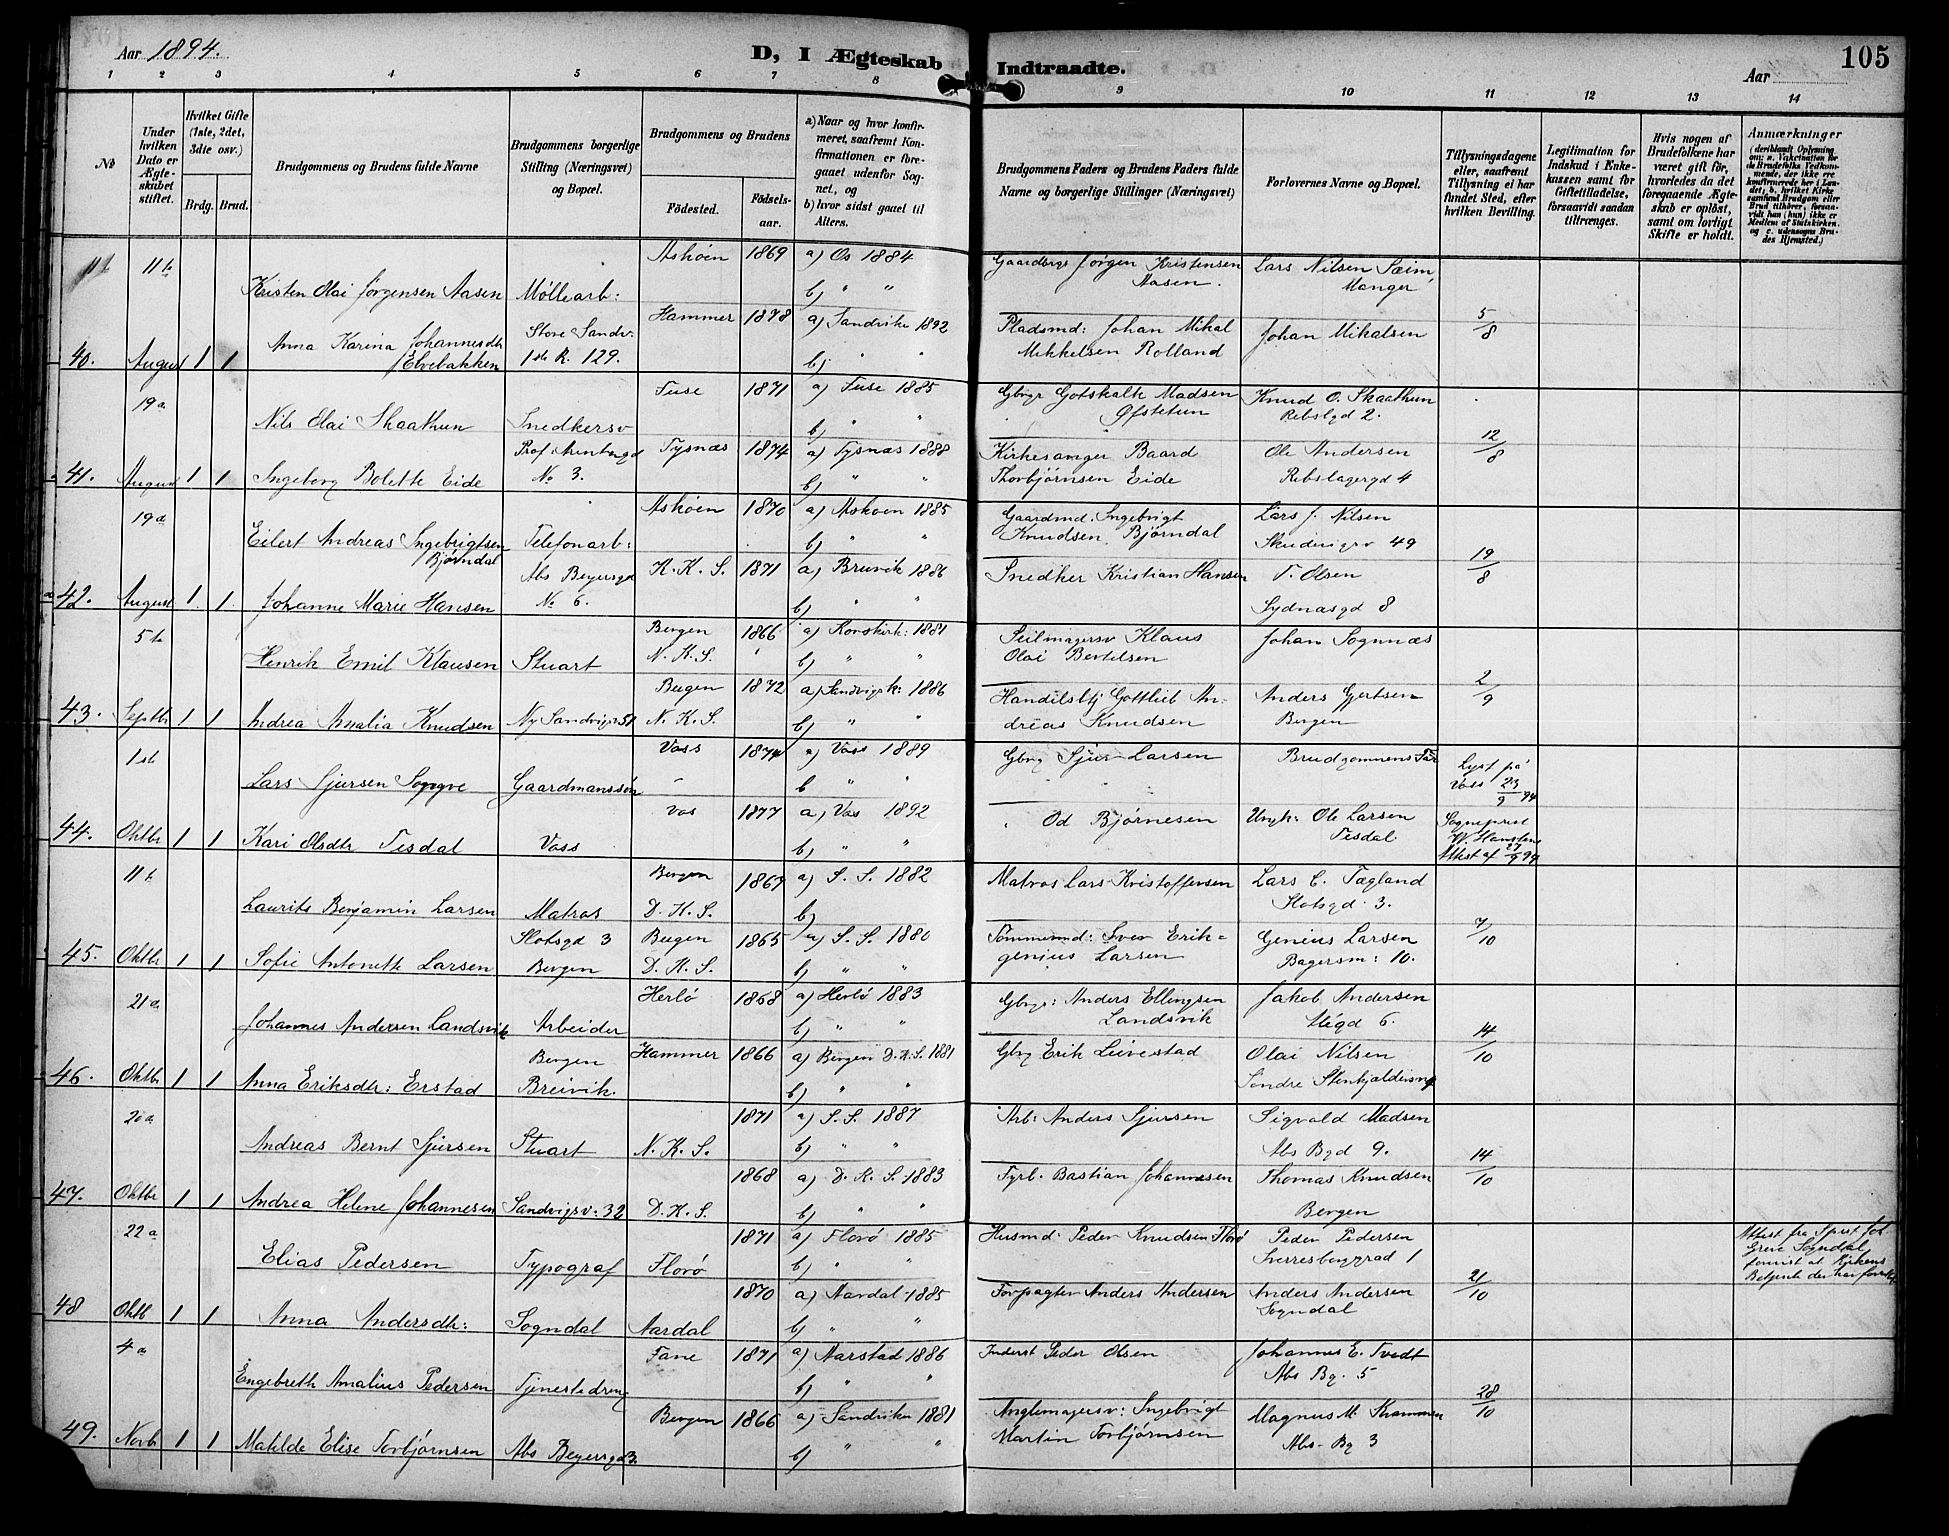 Aar 1894.
D, I Ægteskab Indtraadte.
Aar
105
1 2 3 4 5 6 7 8 9 10 11 12 13 14
№
Under hvilken Dato er Ægteskabet stiftet.
Hvilket Gifte (1ste, 2det, 3die osv.)
Brdg. Brud.
Brudgommens og Brudens fulde Navne
Brudgommens borgerlige Stilling (Næringsvei) og Bopæl.
Brudgommens og Brudens
Fødested.
Fødselsaar.
a) Naar og hvor konfirmeret, saafremt Konfirmationen er foregaaet udenfor Sognet, og
b) hvor sidst gaaet til Alters.
Brudgommens Faders og Brudens Faders fulde Navne og borgerlige Stillinger (Næringsvei)
Forlovernes Navne og Bopæl.
Tillysningsdagene eller, saafremt Tillysning ei har fundet Sted, efter hvilken Bevilling.
Legitimation for Indskud i Enkekassen samt for Giftetilladelse, forsaavidt saadan tiltrænges.
Hvis nogen af Brudefolkene har været gift før, hvorledes da det foregaaende Ægteskab er opløst, samt om lovligt Skifte er holdt.
Anmærkninger (deriblandt Oplysning om: a. Vakcination for de Brudefolks Vedkommende, der ikke ere konfirmerede her i Landet, b. hvilket Kirkesamfund Brudgom eller Brud tilhører, forsaavidt han (hun) ikke er Medlem af Statskirken, og c. udensogns Brudes Hjemsted.)
11te Askøen 1869 a) Os 1884 Gaardbrgr Jørgen Kristensen Lars Nilsen Sæim
Kristen Olai Jørgensen Aasen Møllearb: b) " " Aasen. Manger
Hammer 1878 a) Sandviken 1892 Pladsmd: Johan Mikal Johan Mikalsen 5/8
Anna Karina Johannesdtr Store Sandv. Mikkelsen Rolland
40. August 1 1 Elvebakken 1ste R. 129. b)
19de Fuse 1871 a) Fuse 1885 Gbrgr Gotskalk Madsen Knud O. Skaathun
Nils Olai Skaathun Snedkersv b) " " Øfstetun Rebslgd 2.
Tysnæs 1874 a) Tysnæs 1888 Kirkesanger Baard Ole Andersen 12/8
41. August 1 1 Ingeborg Bolette Eide No 3. b) " " Thorbjørnsen Eide Rebslagergd 4
19de Askøen 1870 a) Askøen 1885 Gaardmd: Ingebrigt Lars J. Nilsen
Eilert Andreas Ingebrigtsen Telefonarb: b) " " Knudsen Bjørndal 49
Bjørndal Abs Beyersgd K. K. S. 1871 a) Bruvik 1886 Snedker Kristian Hansen T. Olsen 19/8
42. August 1. 1. Johanne Marie Hansen No 6. b) " " Sydnæsgd 8
5te Bergen 1866 a) Korskirk: 1881 Seilmagersv Klaus Johan Sognnæs
Henrik Emil Klausen Stuart N. K. S. b) " " Olai Bertelsen
Bergen 1872 a) Sandvigsk: 1886 Handelsbtj Gottlieb An- Anders Gjertsen 2/9
43. Septbr 1 1 Andrea Amalia Knudsen Ny Sandvigsv 51 N. K. S. b) " " dreas Knudsen Bergen
1ste Voss 1874 a) Voss 1889 Gbrg Sjur Larsen Brudgommens Far Lyst på
Lars Sjursen Gaardmanssøn b " " Voss 23/9 94
Vos 1877 a) Vos 1892 Od Bjørnesen Ungk: Ole Larsen Sogneprest
44. Oktbr 1 1 Kari Olsdtr Tesdal Voss b) " " Tesdal Attest af 27/9 94
11te Bergen 1867 a) S. S. 1882 Matros Lars Kristoffersen Lars C. Fægland
Laurits Benjamin Larsen Matros D. K. S. b) Slotsgd. 3.
Slotsgd 3 Bergen 1865 a) S. S. 1880 Tømmermd: Iver Erik- Genius Larsen 7/10
45. Oktbr 1 1 Sofie Antonette Larsen Bergen D. K. S. b) " " genius Larsen Bagersm: 10.
21de Herlø 1868 a) Herlø 1883 Gbrgr: Anders Ellingsen Jakob Andersen
Johannes Andersen Landsvik Arbeider b) " " Landsvik 6.
Bergen Hammer 1866 a) Bergen D. K. S. 1881 Gbrg Erik Leirestad Olai Nilsen 14/10
46. Oktbr 1 1 Anna Eriksdtr: Erstad Breivik. b) " " Søndre
20de 1871 a) S. S. 1887 Arb: Anders Sjursen Sigvald Madsen
Andreas Bernt Sjursen Stuart N. K. S. b) " " Abs Bgd 9.
1868 a) D. K. S. 1883 Fyrb: Bastian Johannesen Thomas Knudsen 14/10
47. Oktbr 1 1 Andrea Helene Johannesen Sandvigsv: 32 D. K. S. b) " " Bergen
22de 1871 a) Florø 1885 Husmd: Peder Knudsen Florø Peder Pedersen Attest fra Sprst
Elias Pedersen Typograf Florø b) " " Sverresborggad 1
1870 a) Aardal 1885 Forpagter Anders Andersen Anders Andersen 21/10
48 Oktb 1 1 Anna Andersdtr: Sogndal Aardal b) " " Sogndal
4de Fane 1871 a) Aarstad 1886 Inderst Peder Olsen Johannes E. Tvedt
Engebreth Amalius Pedersen Tjenestedreng b) " " Abs Bg. 5
Bergen 1866 a) Sandviken 1881 Anglemagersv: Ingebrigt Magnus M. 28/10
49. Novb 1 1 Matilde Elise Torbjørnsen Abs Beyersgd 3. b) " " Martin Torbjørnsen Abs-Bg 3